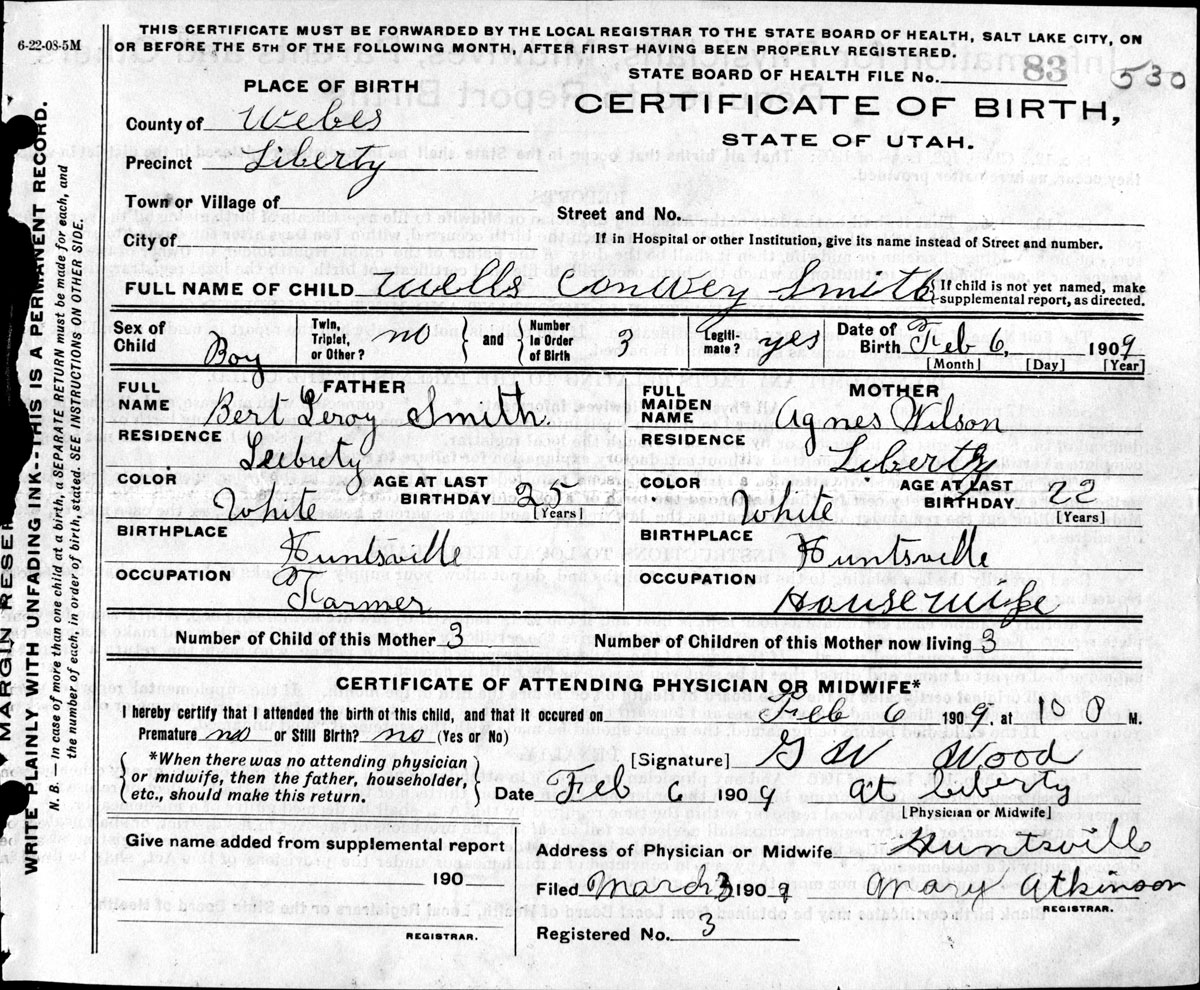 6-22-08-5M
THIS CERTIFICATE MUST BE FORWARDED BY THE LOCAL REGISTRAR TO THE STATE BOARD OF HEALTH, SALT LAKE CITY, ON
OR BEFORE THE 5TH OF THE FOLLOWING MONTH, AFTER FIRST HAVING BEEN PROPERLY REGISTERED.
STATE BOARD OF HEALTH FILE No. 83 530
PLACE OF BIRTH
CERTIFICATE OF BIRTH,
STATE OF UTAH.
County of Weber
Precinct Liberty
Town or Village of
Street and No.
City of
If in Hospital or other Institution, give its name instead of Street and number.
FULL NAME OF CHILD Wells Conwey Smith { If child is not yet named, make
supplemental report, as directed.
Sex of Child Boy Twin, Triplet, or Other? no } and { Number In Order of Birth 3 Legiti-mate? yes Date of Birth Feb 6, 1909
[Month] [Day] [Year]
FATHER
FULL NAME Bert Leroy Smith.
RESIDENCE
COLOR White AGE AT LAST BIRTHDAY [Years]
BIRTHPLACE Huntsville
OCCUPATION Farmer
MOTHER
FULL MAIDEN NAME Agnes Wilson
RESIDENCE Liberty
COLOR White AGE AT LAST BIRTHDAY 22 [Years]
BIRTHPLACE Huntsville
OCCUPATION Housewife
Number of Child of this Mother 3 Number of Children of this Mother now living 3
CERTIFICATE OF ATTENDING PHYSICIAN OR MIDWIFE*
I hereby certify that I attended the birth of this child, and that it occured on Feb 6 1909, at 10 M.
Premature no or Still Birth? no (Yes or No)
[Signature] G W Wood
{ *When there was no attending physician
or midwife, then the father, householder,
etc., should make this return. }
Date Feb 6 1909 at Liberty
[Physician or Midwife]
Give name added from supplemental report
190
REGISTRAR.
Address of Physician or Midwife Huntsville
Filed March 3 1909 Mary Atkinson
REGISTRAR.
Registered No. 3
MARGIN RESER
WRITE PLAINLY WITH UNFADING INK--THIS IS A PERMANENT RECORD.
N. B. In case of more than one child at a birth, a SEPARATE RETURN must be made for each, and
the number of each, in order of birth, stated. SEE INSTRUCTIONS ON OTHER SIDE.